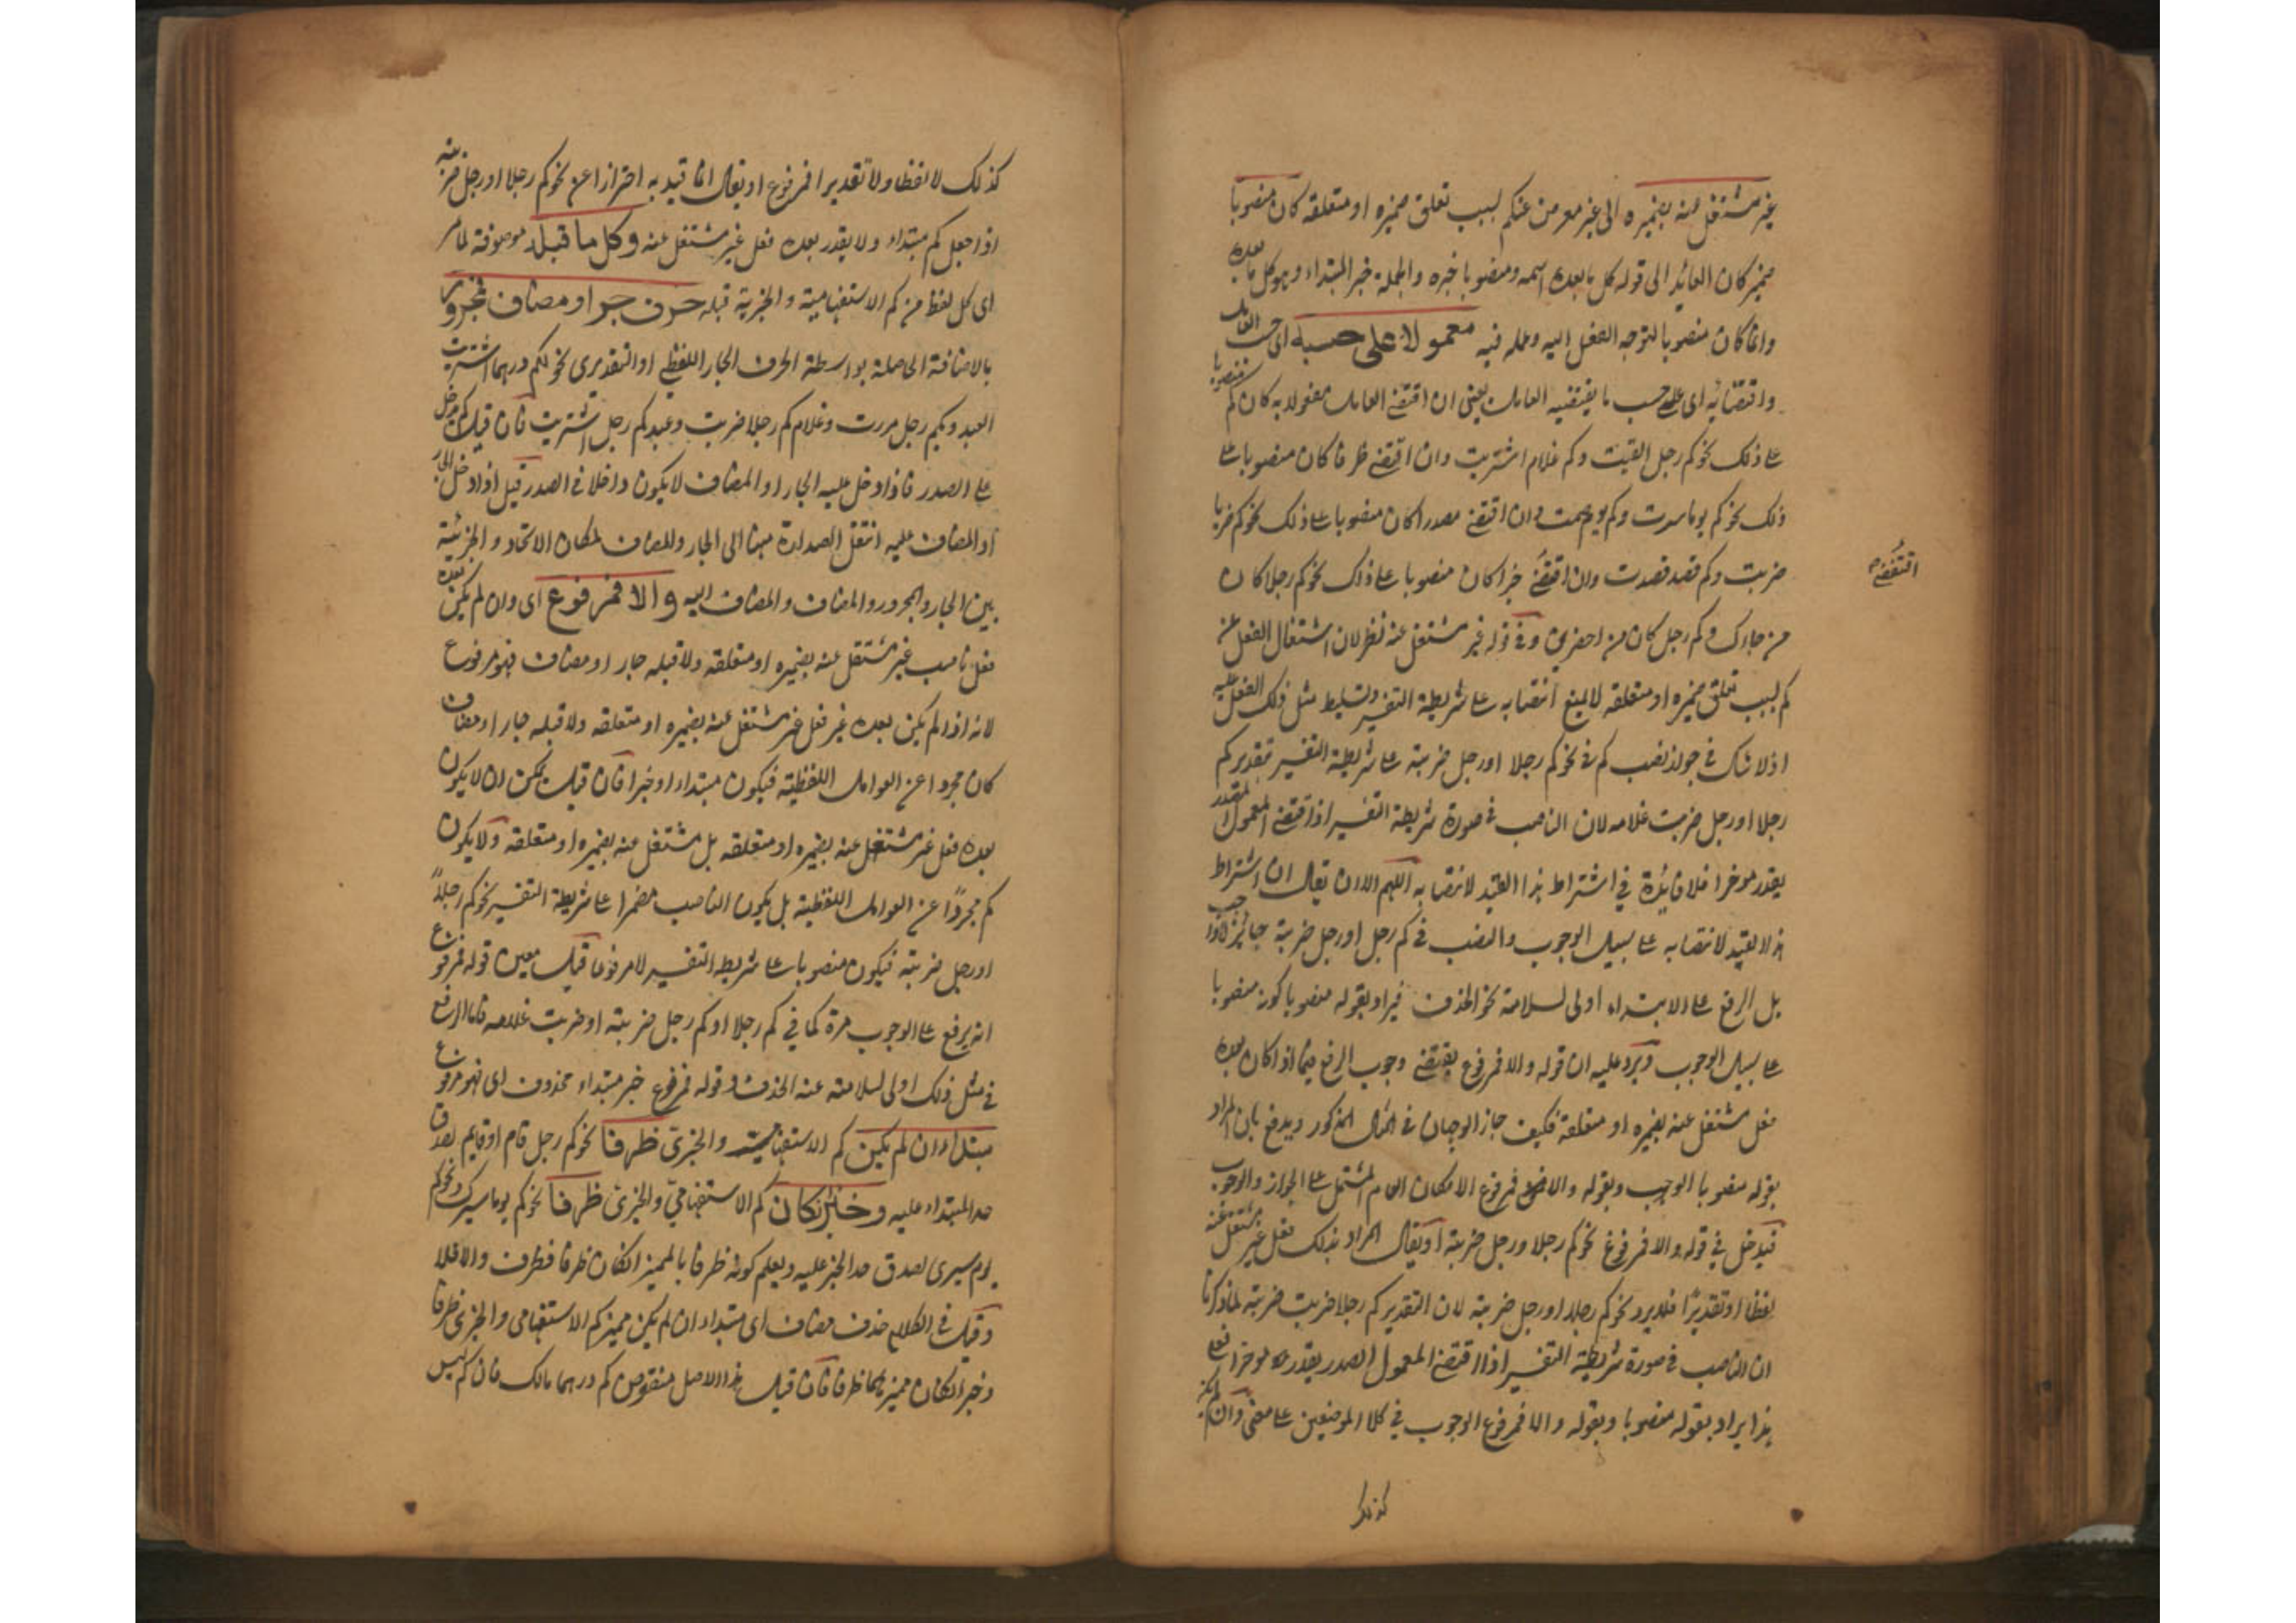 غير مشتغل عنه بضميره الى غير معرض عنكم لسبب تعلق ضميره او متعلقه كان منصوبا
ضمير كان العائد الى قوله كل ما بعده اسمه ومنصوبا خبره والجملة خبر المبتداء وهو كل ما بعده
وانما كان منصوبا لتوجه الفعل اليه وعمله فيه معمولا على حسبه اى حسب العامل
واقتضائه اى على حسب ما يقتضيه العامل يعنى ان اقتضى العامل مفعولا به كان كم منصوبا
على ذلك نحو كم رجل لقيت وكم غلام اشتريت وان اقتضى ظرفا كان منصوبا على
ذلك نحو كم يوما سرت وكم يوم صمت وان اقتضى مصدرا كان منصوبا على ذلك نحو كم ضربا
ضربت وكم قصد قصدت وان اقتضى خبرا كان منصوبا على ذلك نحو كم رجلا كان
اقتضى
من جاءك وكم رجل كان من احضرى وفى قوله غير مشتغل عنه نظر لان اشتغال الفعل عن
كم لسبب تعلق ضميره او متعلقه لا يمنع انتصابه على شريطة التفسير وتسليط مثل ذلك الفعل عليه
اذ لا شك فى جواز نصب كم فى نحو كم رجلا او رجل ضربته على شريطة التفسير بتقدير كم
رجلا او رجل ضربت غلامه لان الناصب فى صورة شريطة التفسير اذا اقتضى المعمول الصدر
يقدر موخرا فلا فائدة فى اشتراط هذا القيد لانتصابه اللهم الا ان يقال ان اشتراط
هذا القيد لانتصابه على سبيل الوجوب والنصب فى كم رجل او رجل ضربته جائز لا واجب
بل الرفع على الابتداء اولى لسلامة نحو الحذف فيراد بقوله منصوبا كونه منصوبا
على سبيل الوجوب ويرد عليه ان قوله والا فمرفوع يقتضى وجوب الرفع فيما اذا كان بعده
فعل مشتغل عنه بضميره او متعلقه فكيف جاز الوجهان فى المثال المذكور ويدفع بان المراد
بقوله منصوبا الوجوب وبقوله والا فمرفوع الامكان العام المشتمل على الجواز والوجوب
فيدخل فى قوله والا فمرفوع نحو كم رجلا ورجل ضربته او يقال المراد بذلك فعل غير مشتغل عنه
لفظا او تقديرا فلا يرد نحو كم رجلا او رجل ضربته لان التقدير كم رجلا ضربت ضربته لما ذكرنا
ان الناصب فى صورة شريطة التفسير اذا اقتضى المعمول الصدر يقدر موخرا فعلى
هذا يراد بقوله منصوبا وبقوله والا فمرفوع الوجوب فى كلا الموضعين على معنى وان لم يكن
كذلك
كذلك لا لفظا ولا تقديرا فمرفوع او يقال انما قيد به احترازا عن نحو كم رجلا او رجل ضربته
اذا جعل كم مبتداء ولا يقدر بعده فعل غير مشتغل عنه وكل ما قبله موصوفة لما مر
اى كل لفظ من كم الاستفهامية والخبرية قبله حرف جر او مضاف فمجرور
بالاضافة الحاصلة بواسطة الحرف الجار اللفظى او التقديرى نحو بكم درهما اشتريت
العبد وبكم رجل مررت وغلام كم رجلا ضربت وعبد كم رجل اشتريت فان قيل كم يدخل
على الصدر فاذا دخل عليه الجار او المضاف لا يكون داخلا فى الصدر قيل اذا دخل الجار
او المضاف عليه انتقل الصدارة منها الى الجار والمضاف لمكان الاتحاد والجزئية
بين الجار والمجرور والمضاف والمضاف اليه والا فمرفوع اى وان لم يكن بعده
فعل ناصب غير مشتغل عنه بضميره او متعلقه ولا قبله جار او مضاف فهو مرفوع
لانه اذا لم يكن بعده غير فعل غير مشتغل عنه بضميره او متعلقه ولا قبله جار او مضاف
كان مجردا عن العوامل اللفظية فيكون مبتداء او خبرا فان قيل يمكن ان لا يكون
بعده فعل غير مشتغل عنه بضميره او متعلقه بل مشتغل عنه بضميره او متعلقه ولا يكون
كم مجردا عن العوامل اللفظية بل يكون الناصب مضمرا على شريطة التفسير نحو كم رجلا
او رجل ضربته فيكون منصوبا على شريطة التفسير لا مرفوعا قيل معنى قوله فمرفوع
انه يرفع على الوجوب مرة كما فى كم رجلا او كم رجل ضربته او ضربت غلامه فاما الرفع
فى مثل ذلك اولى لسلامته عنه الحذف وقوله فمرفوع خبر مبتداء محذوف اى فهو مرفوع
مبتداء ان لم يكن كم الاستفهامية والخبرى ظرفا نحو كم رجل قام او قايم لصدق
حد المبتداء عليه وخبر ان كان كم الاستفهامى والخبرى ظرفا نحو كم يوما سيرك ونحو كم
يوم سيرى لصدق حد الخبر عليه ويعلم كونه ظرفا بالمميز ان كان ظرفا فظرف والا فلا
وقيل فى الكلام حذف مضاف اى مبتداء ان لم يكن مميز كم الاستفهامى والخبرى ظرفا
وخبر ان كان مميزهما ظرفا فان قيل هذا الاصل منقوص بكم درهما مالك فان كم ليس